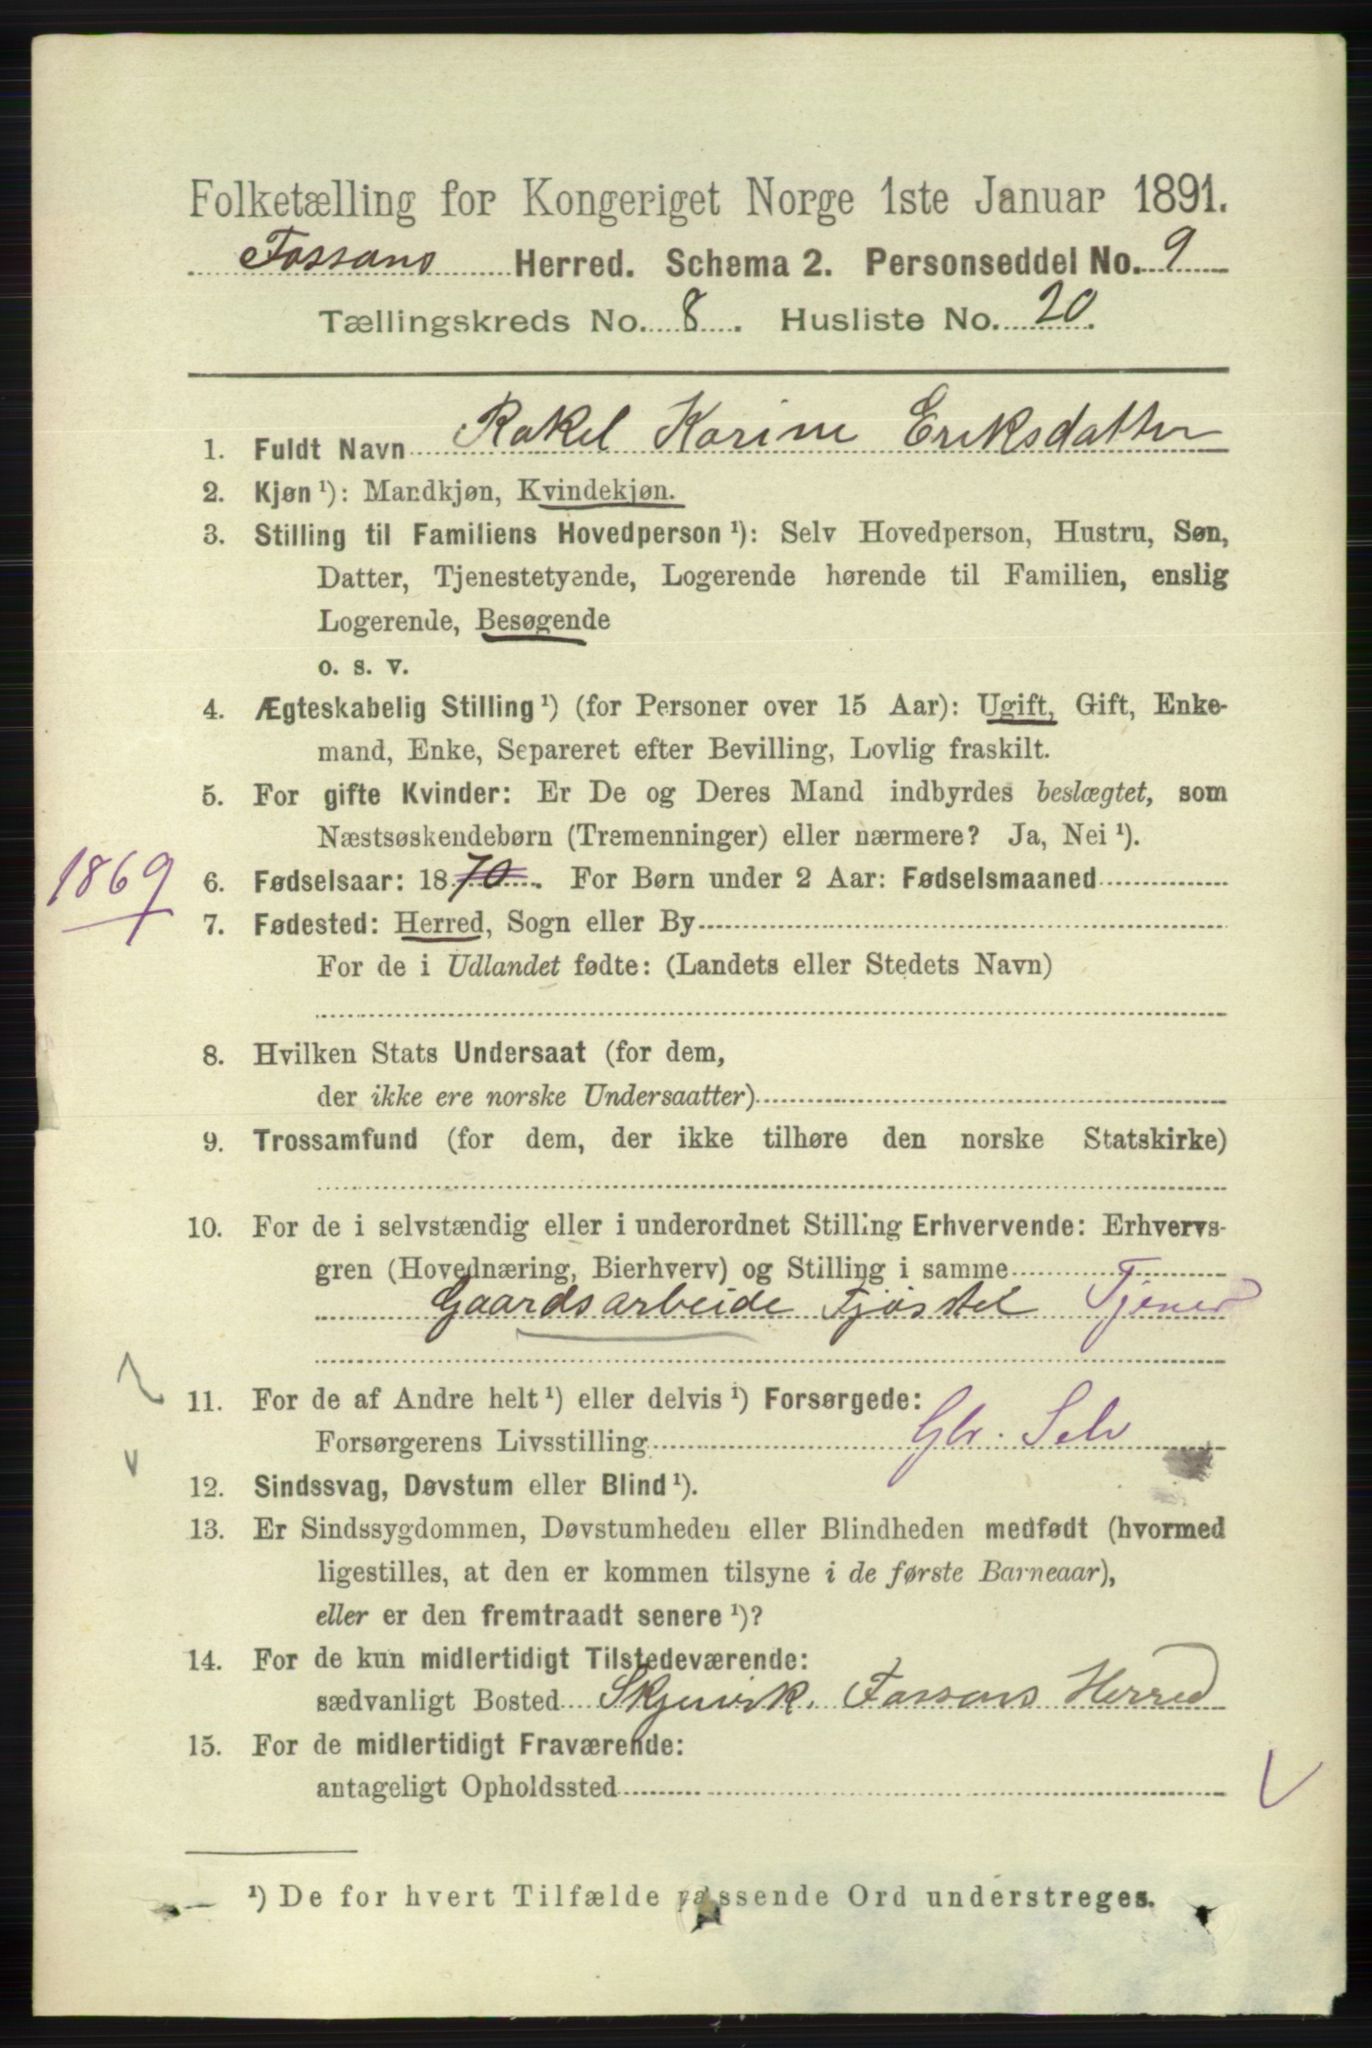 Folketælling for Kongeriget Norge 1ste Januar 1891.
Fossans Herred. Schema 2. Personseddel No. 9
Tællingskreds No. 8. Husliste No. 20.
1. Fuldt Navn Rakel Karine Eriksdatter
2. Kjøn ¹): Mandkjøn, Kvindekjøn.
3. Stilling til Familiens Hovedperson ¹): Selv Hovedperson, Hustru, Søn,
Datter, Tjenestetyende, Logerende hørende til Familien, enslig
Logerende, Besøgende
o. s. v.
4. Ægteskabelig Stilling ¹) (for Personer over 15 Aar): Ugift, Gift, Enke-
mand, Enke, Separeret efter Bevilling, Lovlig fraskilt.
5. For gifte Kvinder: Er De og Deres Mand indbyrdes beslægtet, som
Næstsøskendebørn (Tremenninger) eller nærmere? Ja, Nei ¹).
1869
6. Fødselsaar: 1870. For Børn under 2 Aar: Fødselsmaaned
7. Fødested: Herred, Sogn eller By
For de i Udlandet fødte: (Landets eller Stedets Navn)
8. Hvilken Stats Undersaat (for dem,
der ikke ere norske Undersaatter)
9. Trossamfund (for dem, der ikke tilhøre den norske Statskirke)
10. For de i selvstændig eller i underordnet Stilling Erhvervende: Erhvervs-
gren (Hovednæring, Bierhverv) og Stilling i samme
Gaardsarbeide Fjøsstel Tjener
11. For de af Andre helt ¹) eller delvis ¹) Forsørgede:
Forsørgerens Livsstilling Gbr. Selv
12. Sindssvag, Døvstum eller Blind ¹).
13. Er Sindssygdommen, Døvstumheden eller Blindheden medfødt (hvormed
ligestilles, at den er kommen tilsyne i de første Barneaar),
eller er den fremtraadt senere ¹)?
14. For de kun midlertidigt Tilstedeværende:
sædvanligt Bosted Fossans Herred
15. For de midlertidigt Fraværende:
antageligt Opholdssted
¹) De for hvert Tilfælde passende Ord understreges.